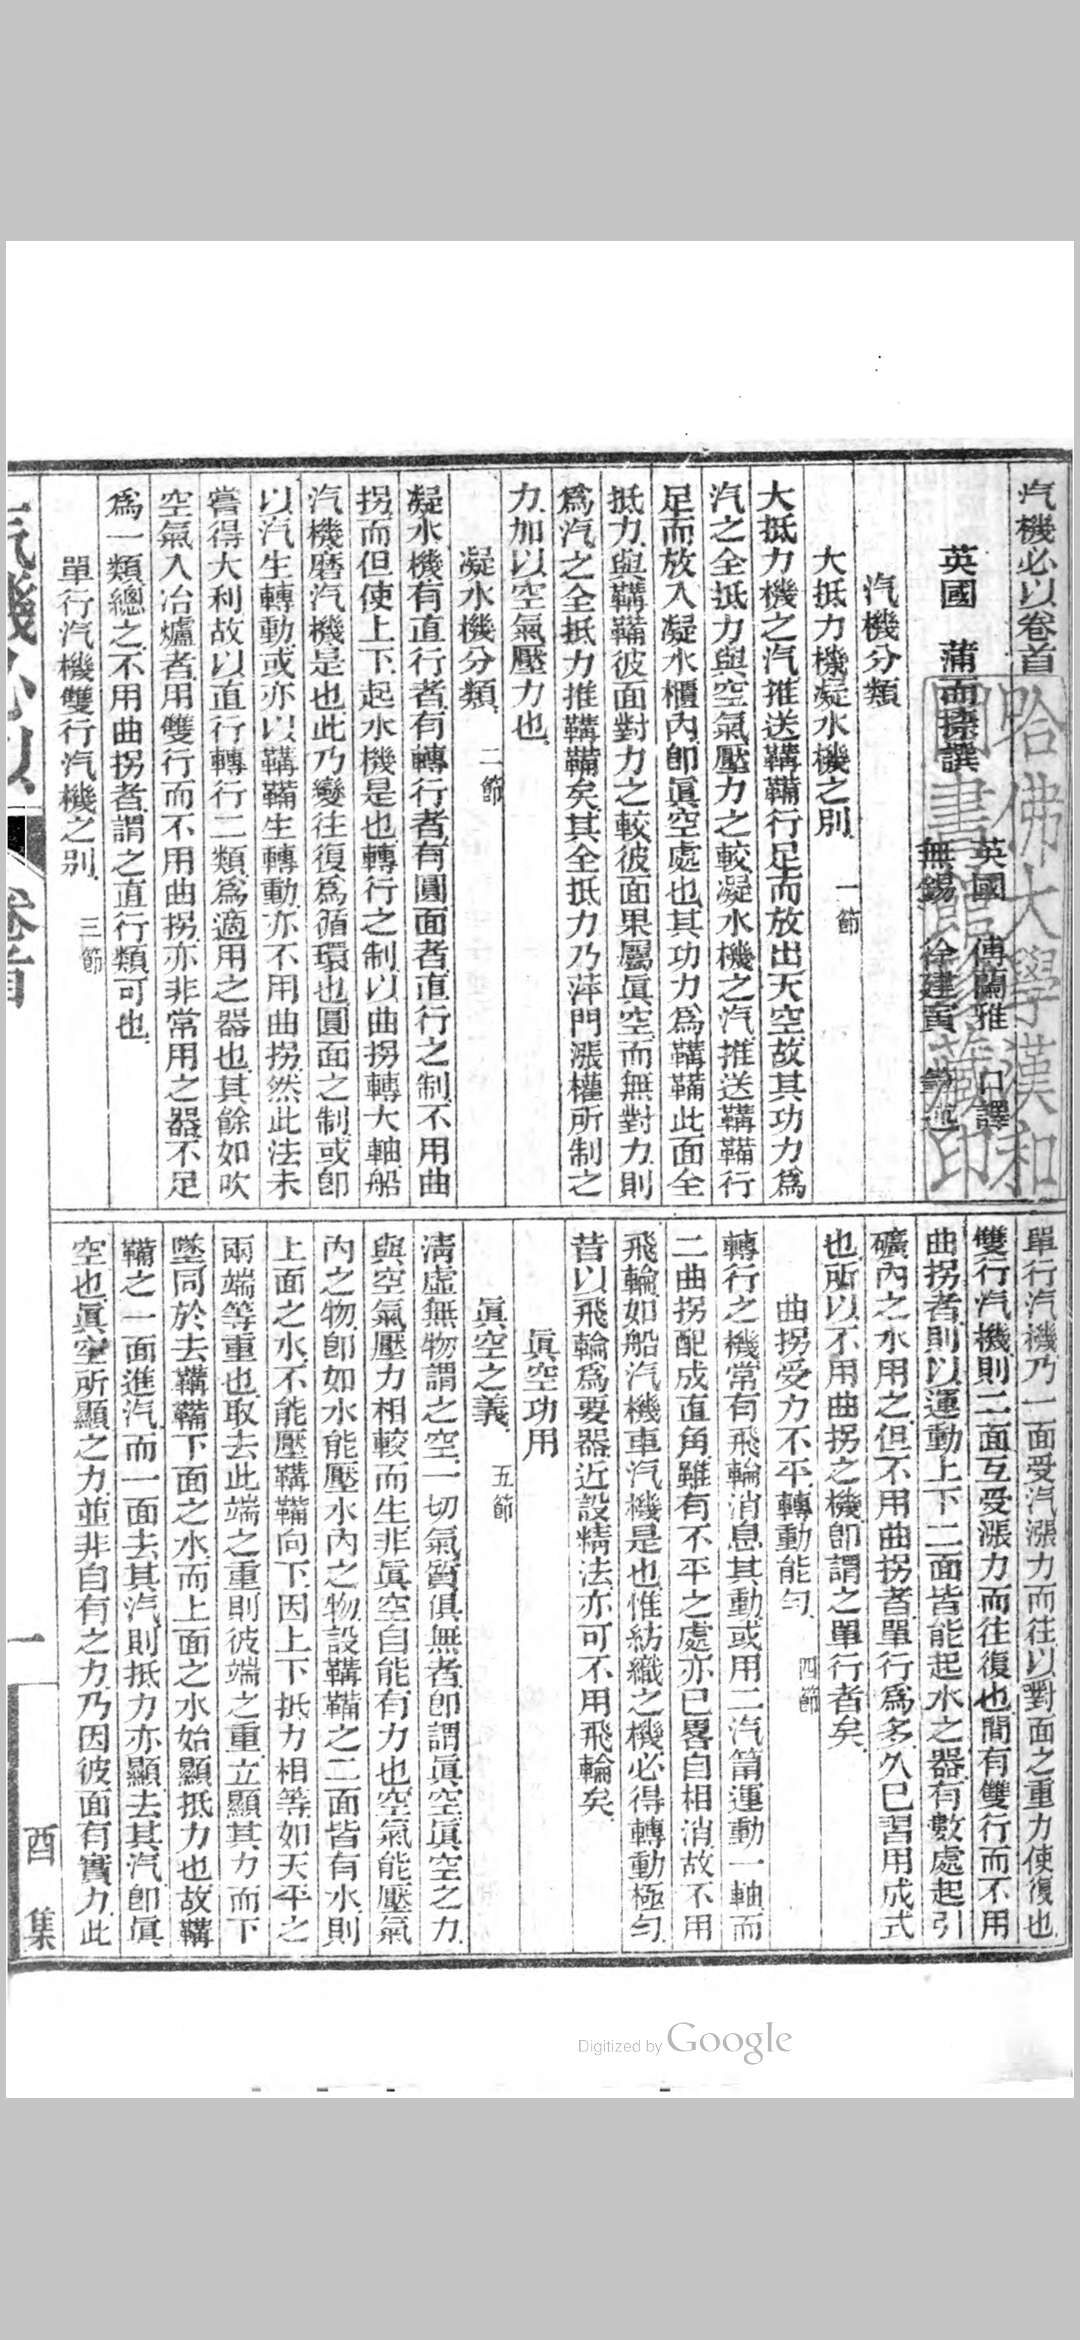 汽機必以卷首
英國 蒲而捺撰
英國 傅蘭雅 口譯
無錫 徐建寅 筆述
汽機分類
大抵力機凝水機之別 一節
大抵力機之汽推送鞲鞴行足而放出天空故其功力爲
汽之全抵力與空氣壓力之較凝水機之汽推送鞲鞴行
足而放入凝水櫃內卽眞空處也其功力爲鞲鞴此面全
抵力與鞲鞴彼面對力之較彼面果屬眞空而無對力則
爲汽之全抵力推鞲鞴矣其全抵力乃萍門漲權所制之
力加以空氣壓力也
凝水機分類 二節
凝水機有直行者有轉行者有圓面者直行之制不用曲
拐而但使上下起水機是也轉行之制以曲拐轉大軸船
汽機磨汽機是也此乃變往復爲循環也圓面之制或卽
以汽生轉動或亦以鞲鞴生轉動亦不用曲拐然此法未
嘗得大利故以直行轉行二類爲適用之器也其餘如吹
空氣入冶爐者用雙行而不用曲拐亦非常用之器不足
爲一類總之不用曲拐者謂之直行類可也
單行汽機雙行汽機之别 三節
單行汽機乃一面受汽漲力而往以對面之重力使復也
雙行汽機則二面互受漲力而往復也間有雙行而不用
曲拐者則以運動上下二面皆能起水之器有數處起引
礦內之水用之但不用曲拐者單行爲多久已習用成式
也所以不用曲拐之機卽謂之單行者矣
曲拐受力不平轉動能勻 四節
轉行之機常有飛輪消息其動或用二汽筩運動一軸而
二曲拐配成直角雖有不平之處亦已畧自相消故不用
飛輪如船汽機車汽機是也惟紡織之機必得轉動極勻
昔以飛輪爲要器近設精法亦可不用飛輪矣
眞空功用
眞空之義 五節
淸虛無物謂之空一切氣質俱無者卽謂眞空眞空之力
與空氣壓力相較而生非眞空自能有力也空氣能壓氣
內之物卽如水能壓水內之物設鞲鞴之二面皆有水則
上面之水不能壓鞲鞴向下因上下抵力相等如天平之
兩端等重也取去此端之重則彼端之重立顯其力而下
墜同於去鞲鞴下面之水而上面之水始顯抵力也故鞲
鞴之一面進汽而一面去其汽則抵力亦顯去其汽卽眞
空也眞空所顯之力並非自有之力乃因彼面有實力此
汽機必以 卷首
一
酉集
哈佛大學漢和
圖書館珍藏印
Digitized by Google